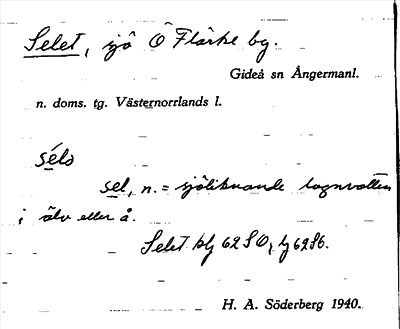 Selet, sjö Ö Flärke by.
Gideå sn Ångermanl.
n. doms. tg. Västernorrlands l.
sélə
sel, n. = sjöliknande lugnvatten
i älv eller å.
Selet blj 62 S O, lj 62 S6.
H. A. Söderberg 1940.